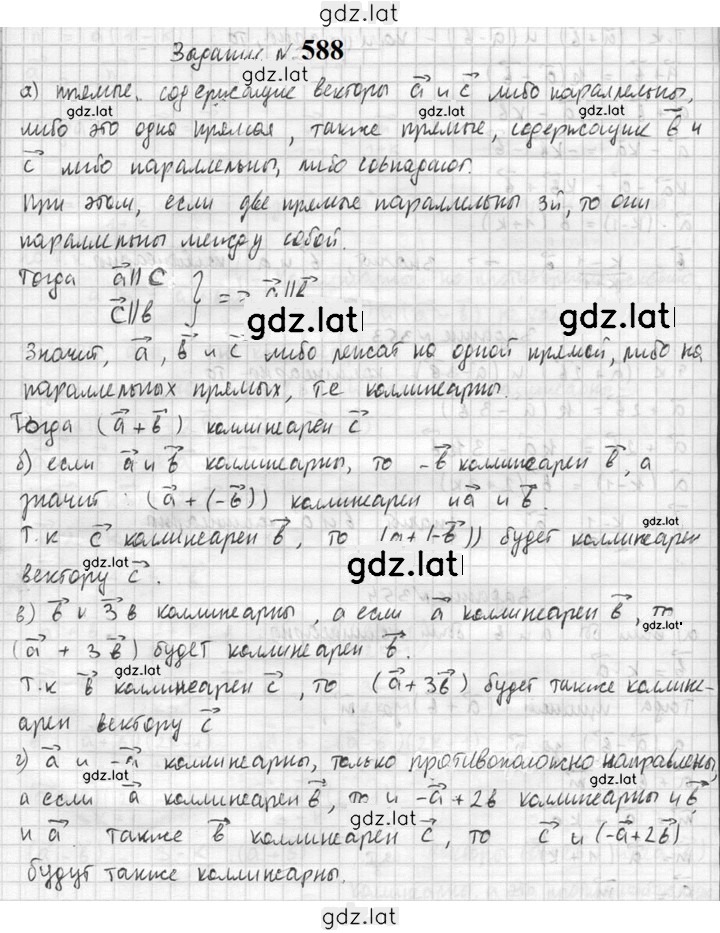 gdz.lat
Задание N 588
gdz.lat
а) прямые, содержащие векторы a и c либо параллельны,
gdz.lat gdz.lat
либо это одна прямая, также прямые, содержащие b и
c либо параллельны, либо совпадают.
При этом, если две прямые параллельны 3й, то они
gdz.lat
параллельны между собой.
Тогда a || c
c || b } => a || b
gdz.lat gdz.lat
Значит, a, b и c либо лежат на одной прямой, либо на
параллельных прямых, т.е коллинеарны.
gdz.lat
Тогда (a + b) коллинеарен c
б) если a и b коллинеарны, то -b коллинеарен b, а
gdz.lat
значит (a + (-b)) коллинеарен и a и b.
gdz.lat
т.к c коллинеарен b, то (m + (-b)) будет коллинеарен
gdz.lat gdz.lat
вектору c.
в) b и 3b коллинеарны, а если a коллинеарен b, то
gdz.lat
(a + 3b) будет коллинеарен b.
gdz.lat
т.к b коллинеарен c, то (a + 3b) будет также коллине-
арен вектору c
г) a и -a коллинеарны, только противоположно направлены,
gdz.lat gdz.lat
а если a коллинеарен b, то и -a + 2b коллинеарны и b
и a. также b коллинеарен c, то c и (-a + 2b)
gdz.lat
будут также коллинеарны.
gdz.lat